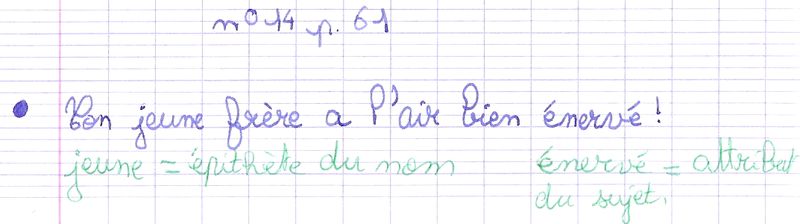 n° 14 p. 61
Ton jeune frère a l'air bien énervé !
jeune = épithète du nom énervé = attribut
du sujet.